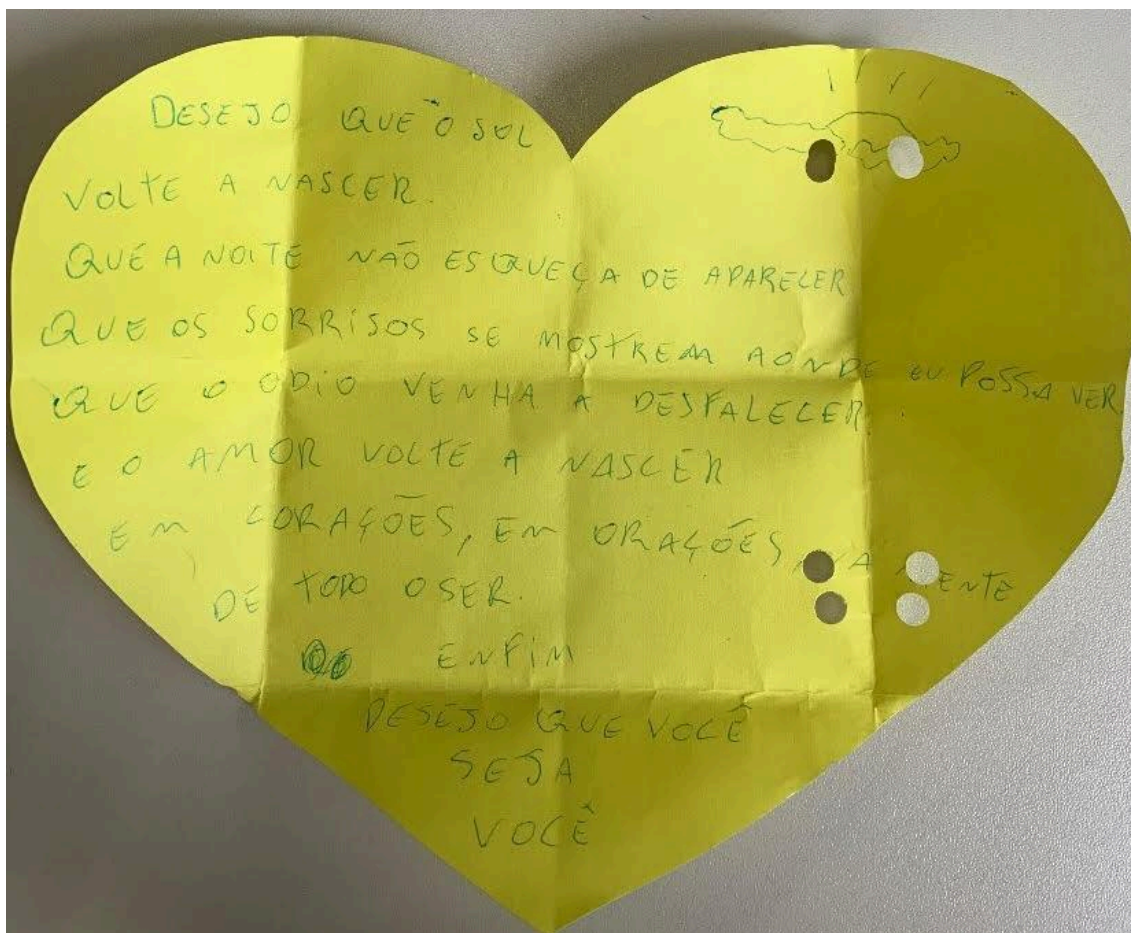 DESEJO QUE O SOL
VOLTE A NASCER.
QUE A NOITE NÃO ESQUEÇA DE APARECER
QUE OS SORRISOS SE MOSTREM AONDE EU POSSA VER
QUE O ODIO VENHA A DESFALECER.
E O AMOR VOLTE A NASCER
EM CORAÇÕES, EM ORAÇÕES, NA MENTE
DE TODO O SER.
ENFIM
DESEJO QUE VOCÊ
SEJA
VOCÊ